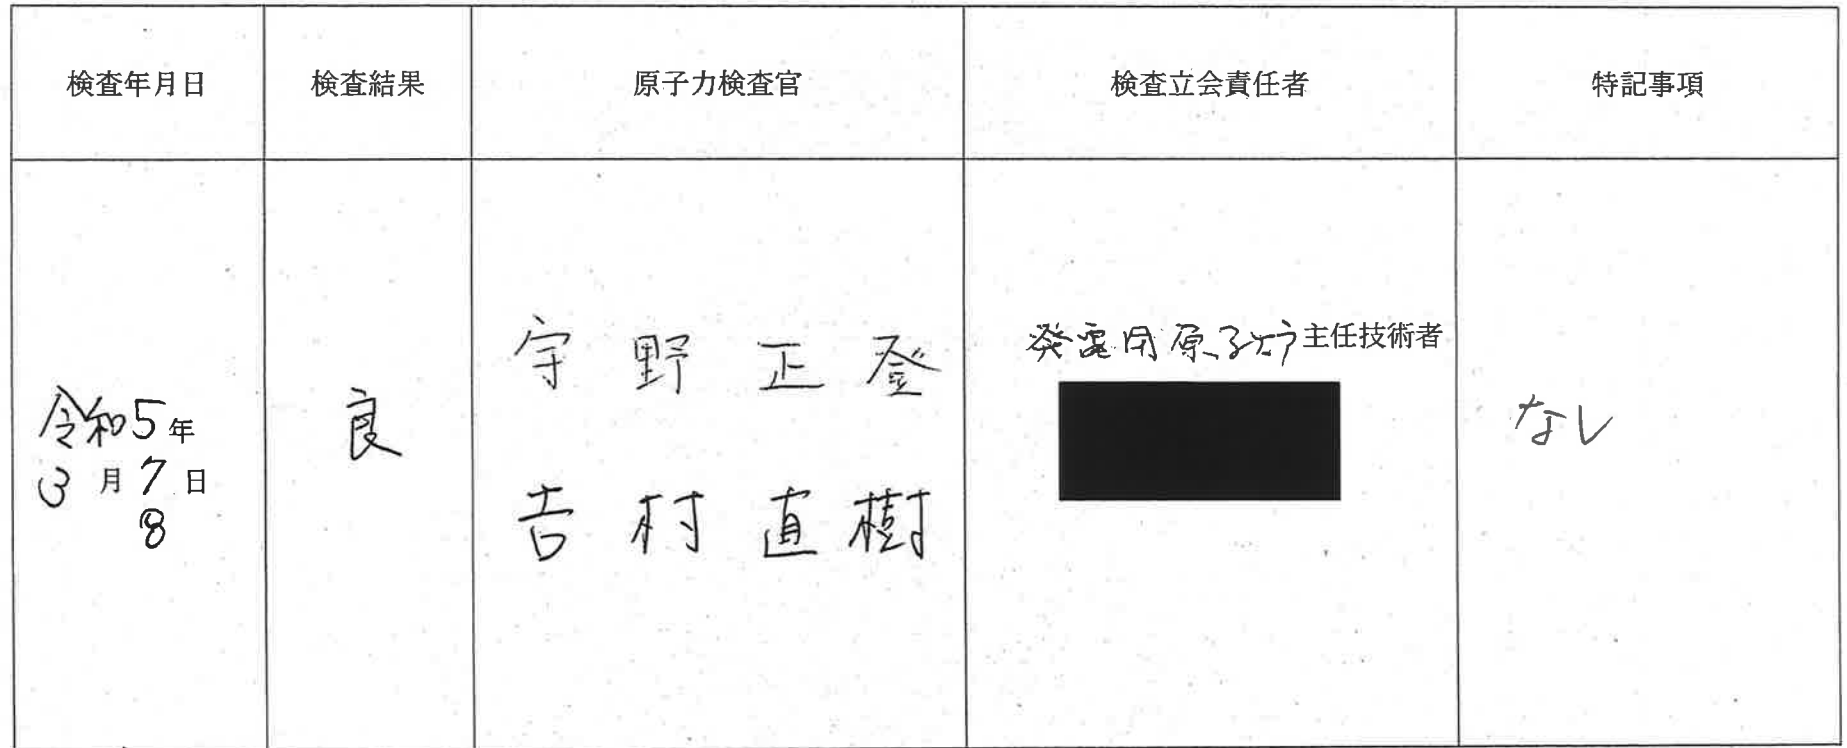 検査年月日
検査結果
原子力検査官
検査立会責任者
特記事項
令和5年
3月7日
8
良
宇野正登
吉村直樹
発電用原子炉主任技術者
なし